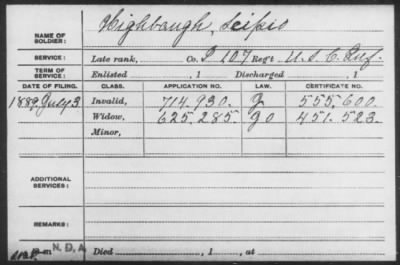 NAME OF SOLDIER: Highbaugh, Scipio
SERVICE: Late rank, Co. D 107 Reg't U.S.C. Inf.
TERM OF SERVICE: Enlisted , 1 Discharged , 1
DATE OF FILING. CLASS. APPLICATION NO. LAW. CERTIFICATE NO.
1889 July 3 Invalid, 714.930. G 555.600.
Widow, 625.285. Go 451.523.
Minor,
ADDITIONAL SERVICES:
REMARKS:
N.D.A. Died , 1 , at